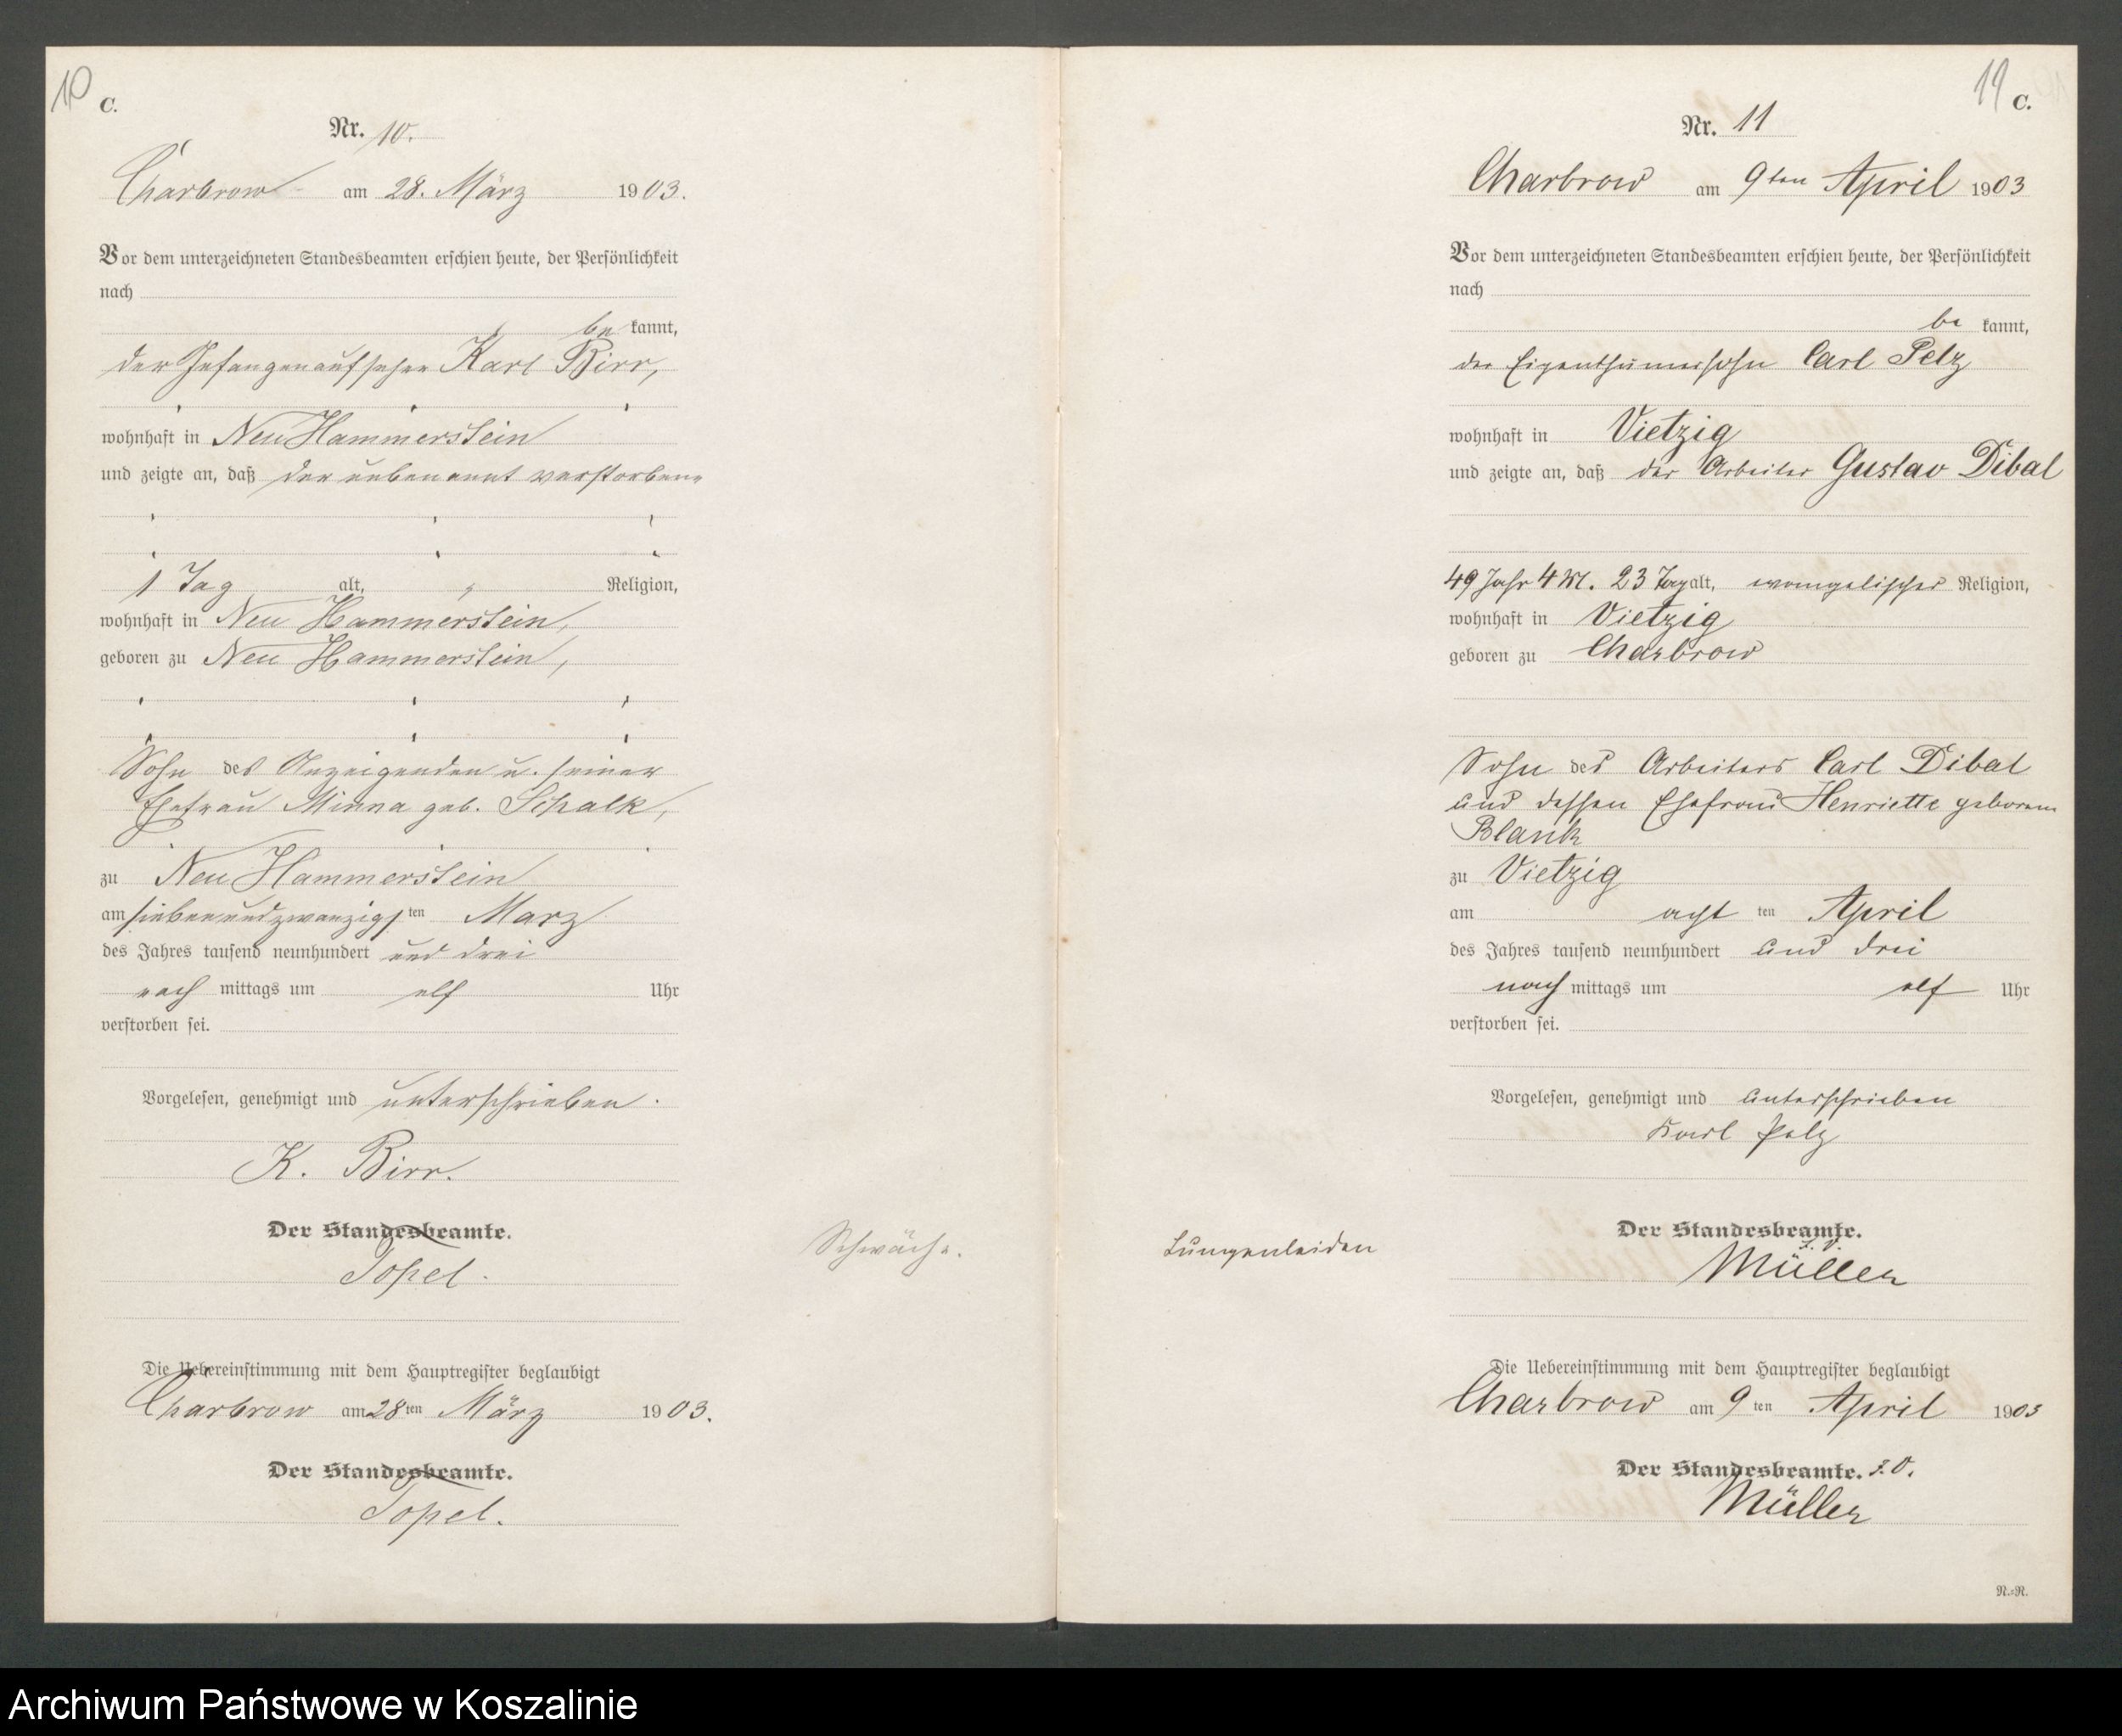 10
C.
Nr. 10.
Charbrow am 28. März 1903.
Vor dem unterzeichneten Standesbeamten erschien heute, der Persönlichkeit
nach
be kannt,
der Gefangenaufseher Karl Birr,
wohnhaft in Neu Hammerstein
und zeigte an, daß der unbenannt verstorbene
1 Tag alt, Religion,
wohnhaft in Neu Hammerstein,
geboren zu Neu Hammerstein,
Sohn des Anzeigenden u. seiner
Ehefrau Minna geb. Schalk,
zu Neu Hammerstein
am siebenundzwanzigsten März
des Jahres tausend neunhundert und drei
nach mittags um elf Uhr
verstorben sei.
Vorgelesen, genehmigt und unterschrieben.
K. Birr.
Der Standesbeamte.
Topel.
Schwäche.
Die Uebereinstimmung mit dem Hauptregister beglaubigt
Charbrow am 28ten März 1903.
Der Standesbeamte.
Topel.
11
C.
Nr. 11
Charbrow am 9ten April 1903
Vor dem unterzeichneten Standesbeamten erschien heute, der Persönlichkeit
nach
be kannt,
der Eigenthümersohn Carl Pelz
wohnhaft in Vietzig
und zeigte an, daß der Arbeiter Gustav Dibal
49 Jahr 4 M. 23 Tag alt, evangelischer Religion,
wohnhaft in Vietzig
geboren zu Charbrow
Sohn des Arbeiters Carl Dibal
und dessen Ehefrau Henriette geborene
Blank
zu Vietzig
am acht ten April
des Jahres tausend neunhundert und drei
nach mittags um elf Uhr
verstorben sei.
Vorgelesen, genehmigt und unterschrieben
Karl Pelz
Der Standesbeamte.
Müller
Lungenleiden
Die Uebereinstimmung mit dem Hauptregister beglaubigt
Charbrow am 9ten April 1903
Der Standesbeamte.
Müller
N.=N.
Archiwum Państwowe w Koszalinie